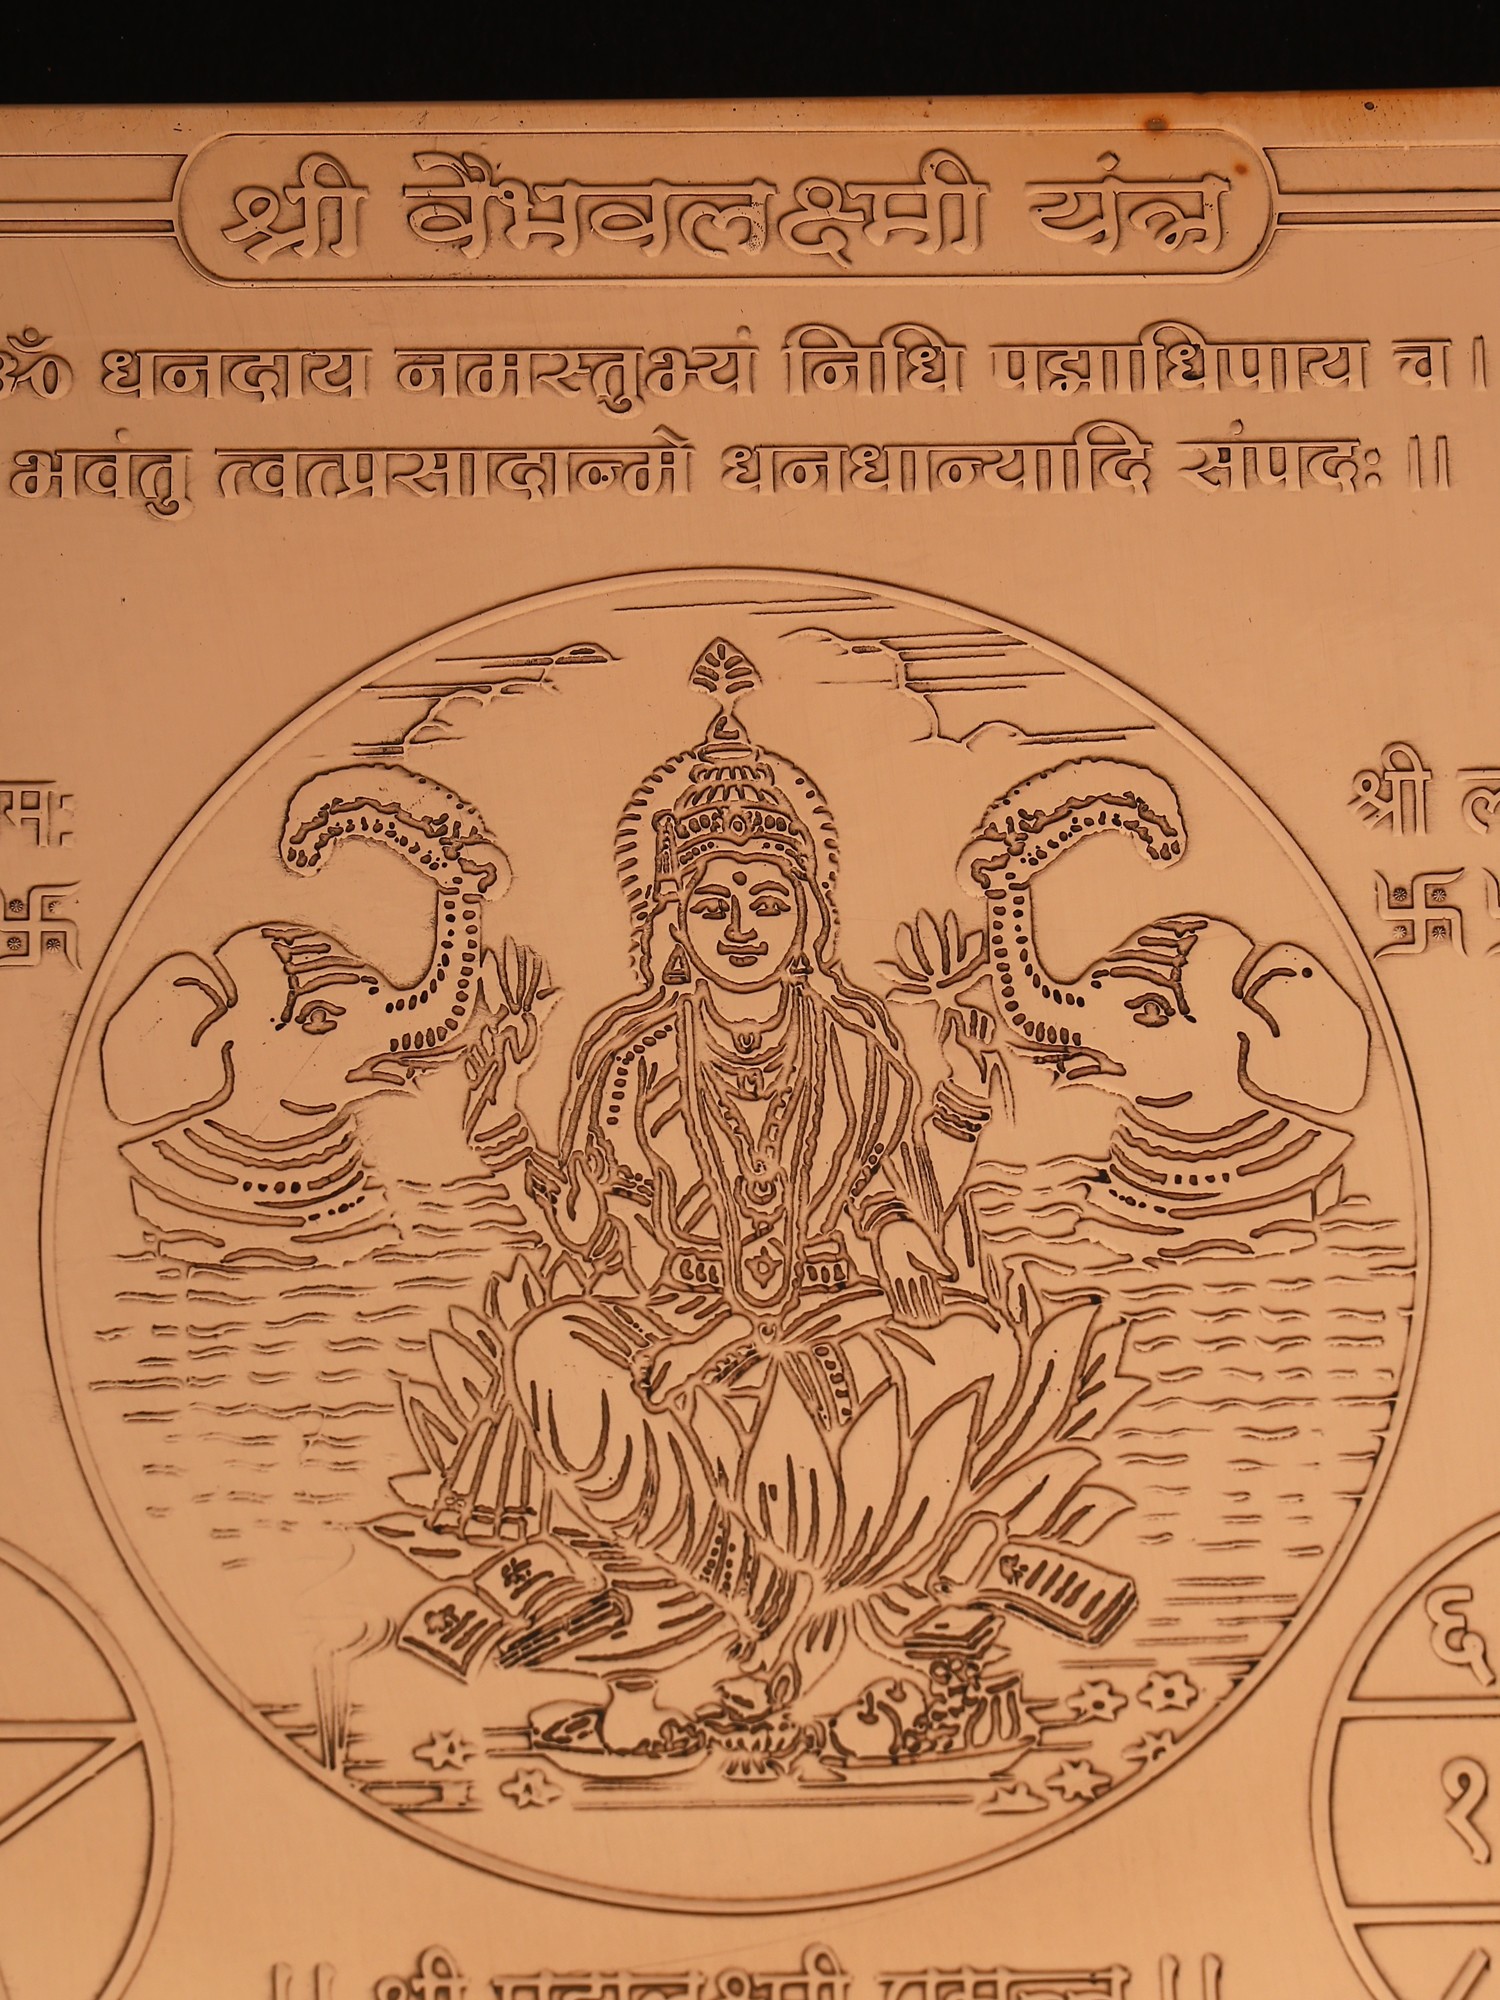 श्री वैभवलक्ष्मी यंत्र
ॐ धनदाय नमस्तुभ्यं निधि पद्माधिपाय च।
भवंतु त्वत्प्रसादान्मे धनधान्यादि संपदः॥
श्री
६
१
॥ श्री ॥